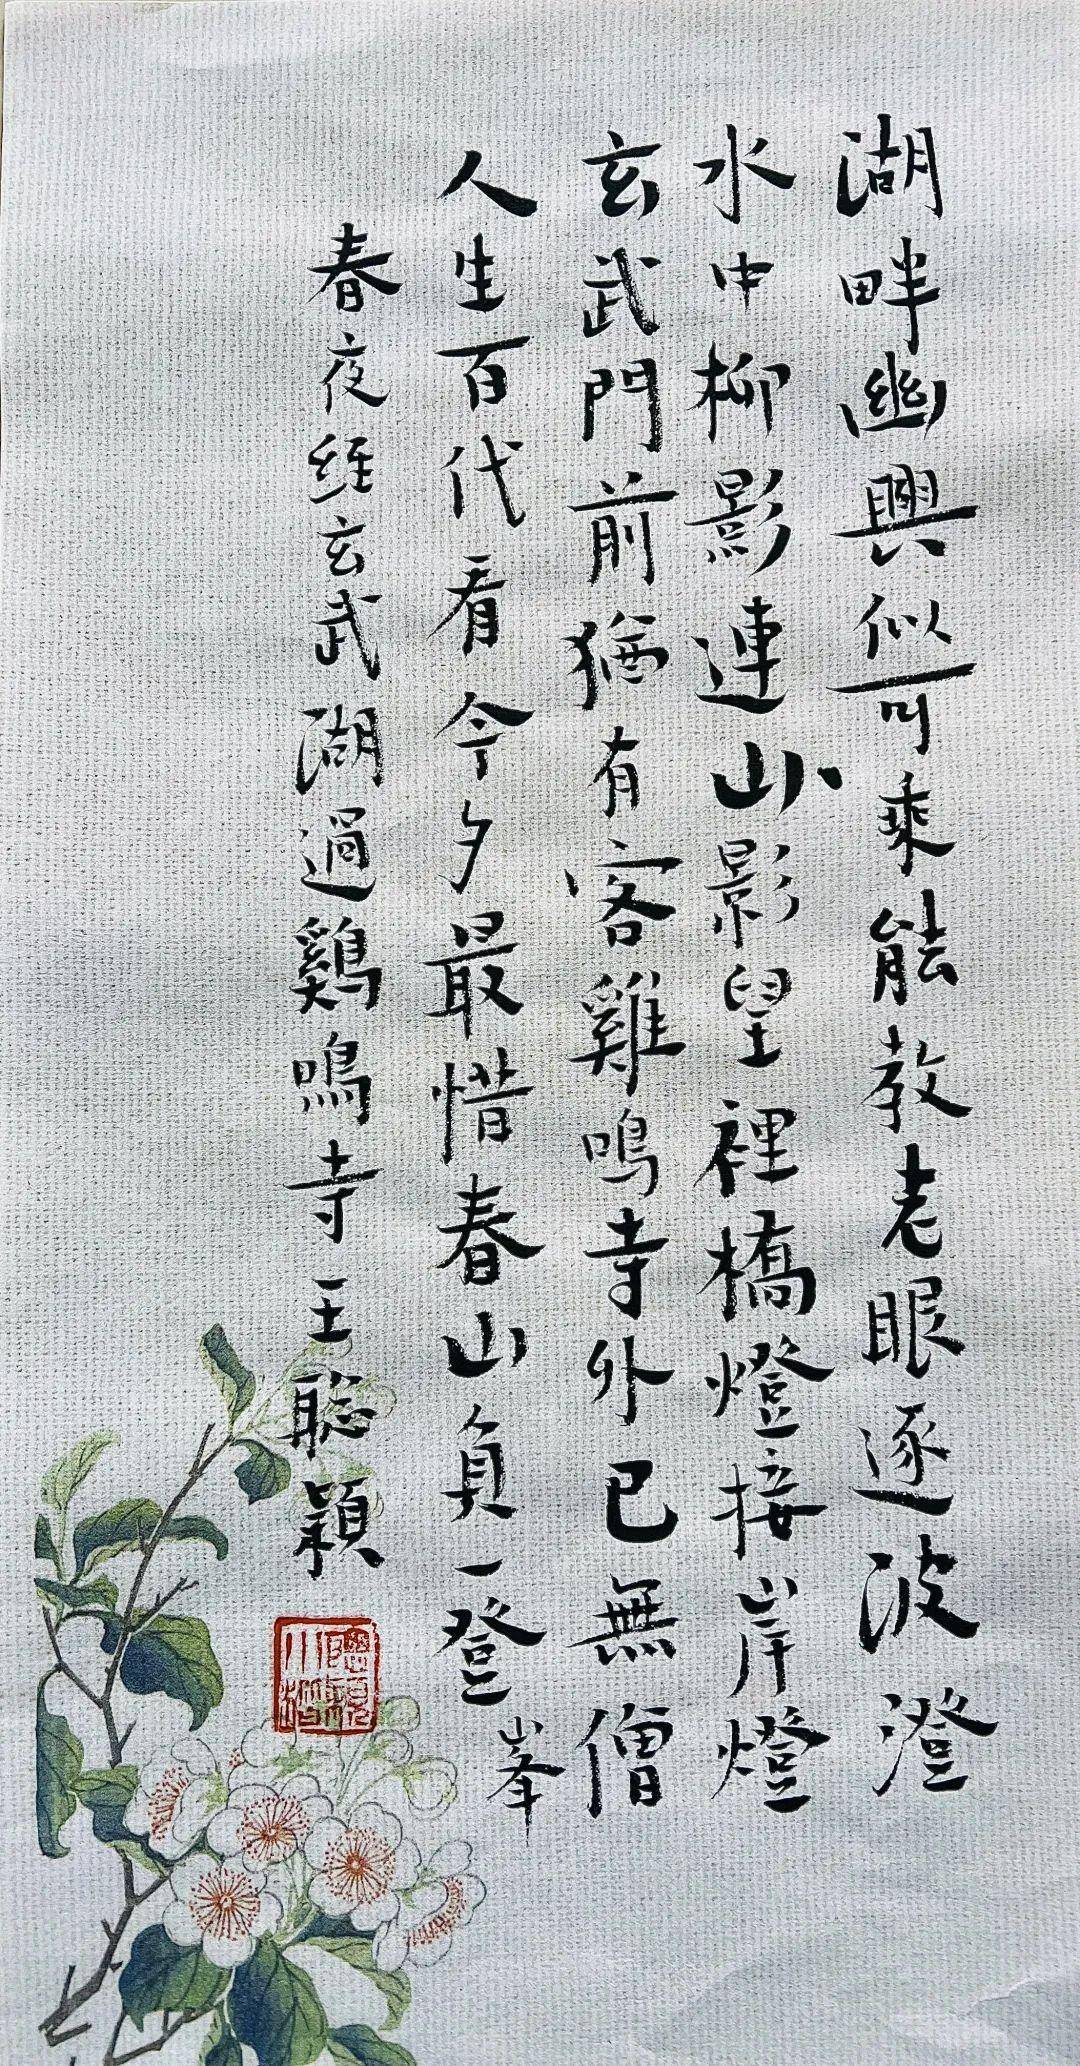 湖畔幽興似可乘能教老眼逐波澄
水中柳影連山影望裡橋燈接岸燈
玄武門前猶有客雞鳴寺外已無僧
人生百代看今夕最惜春山負一登
峯
春夜経玄武湖過鷄鳴寺 王聡穎